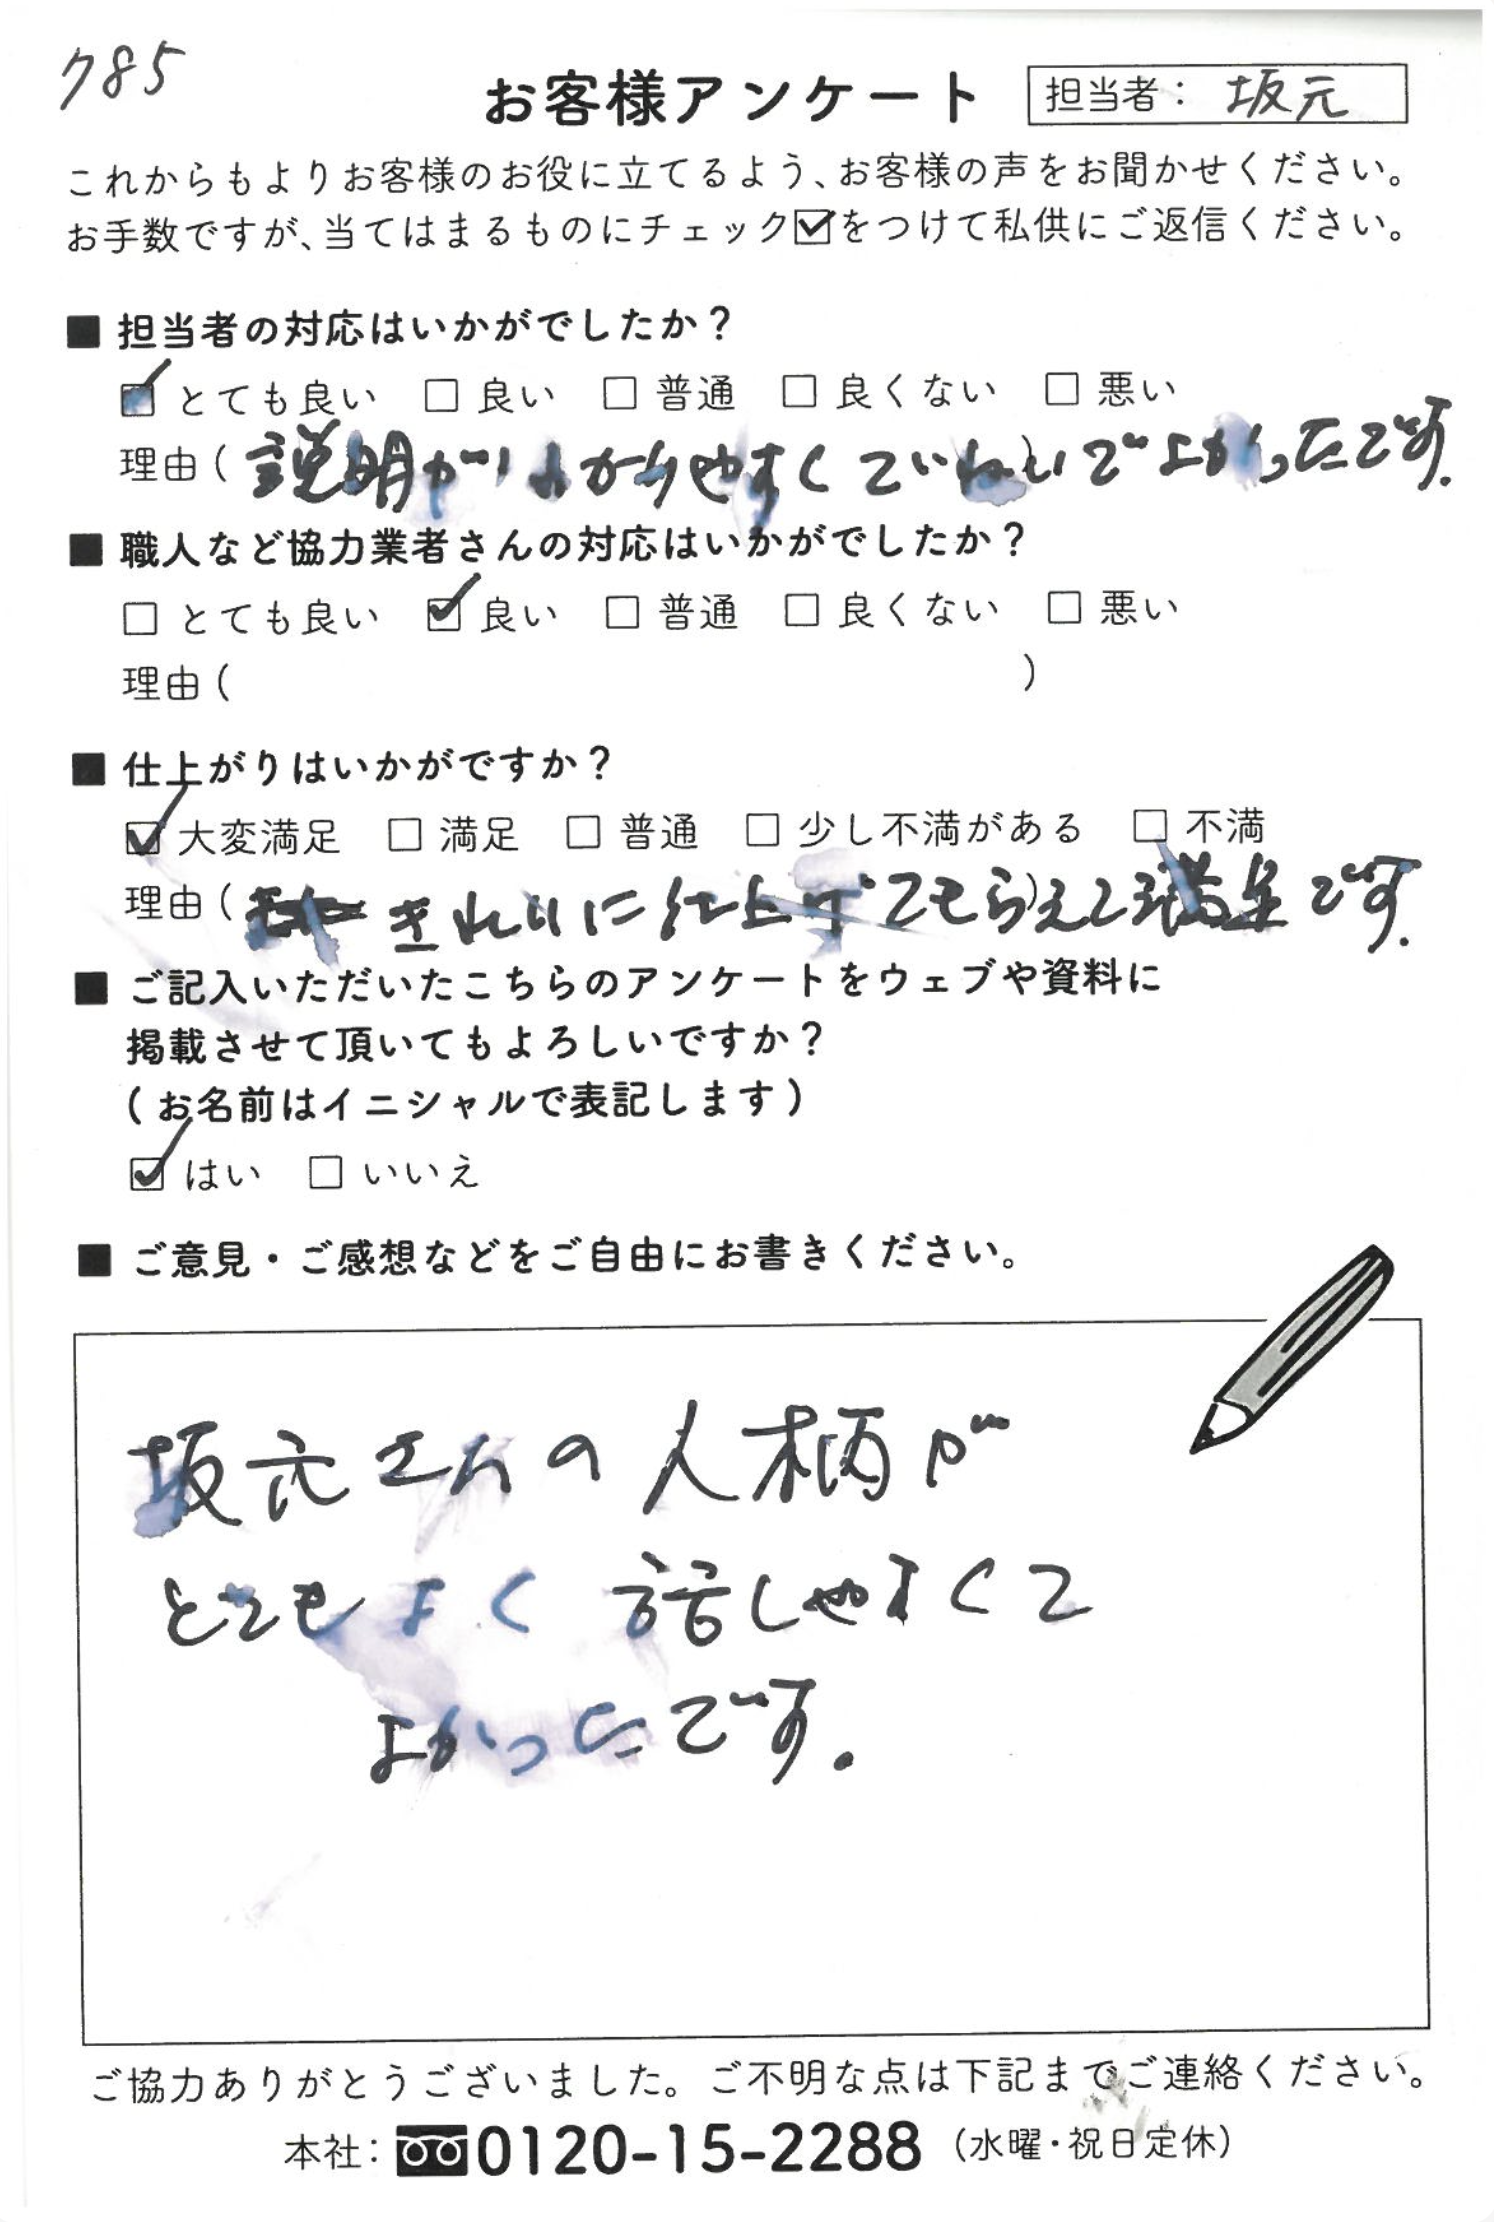 785
お客様アンケート 担当者： 坂元
これからもよりお客様のお役に立てるよう、お客様の声をお聞かせください。
お手数ですが、当てはまるものにチェック☑をつけて私供にご返信ください。
■ 担当者の対応はいかがでしたか？
☑ とても良い □ 良い □ 普通 □ 良くない □ 悪い
理由（説明がわかりやすくていねいでよかったです.）
■ 職人など協力業者さんの対応はいかがでしたか？
□ とても良い ☑ 良い □ 普通 □ 良くない □ 悪い
理由（ ）
■ 仕上がりはいかがですか？
☑ 大変満足 □ 満足 □ 普通 □ 少し不満がある □ 不満
理由（きれいに仕上げてもらえて満足です.）
■ ご記入いただいたこちらのアンケートをウェブや資料に
掲載させて頂いてもよろしいですか？
（お名前はイニシャルで表記します）
☑ はい □ いいえ
■ ご意見・ご感想などをご自由にお書きください。
坂元さんの人柄が
とてもよく 話しやすくて
よかったです.
ご協力ありがとうございました。ご不明な点は下記までご連絡ください。
本社：0120-15-2288（水曜・祝日定休）